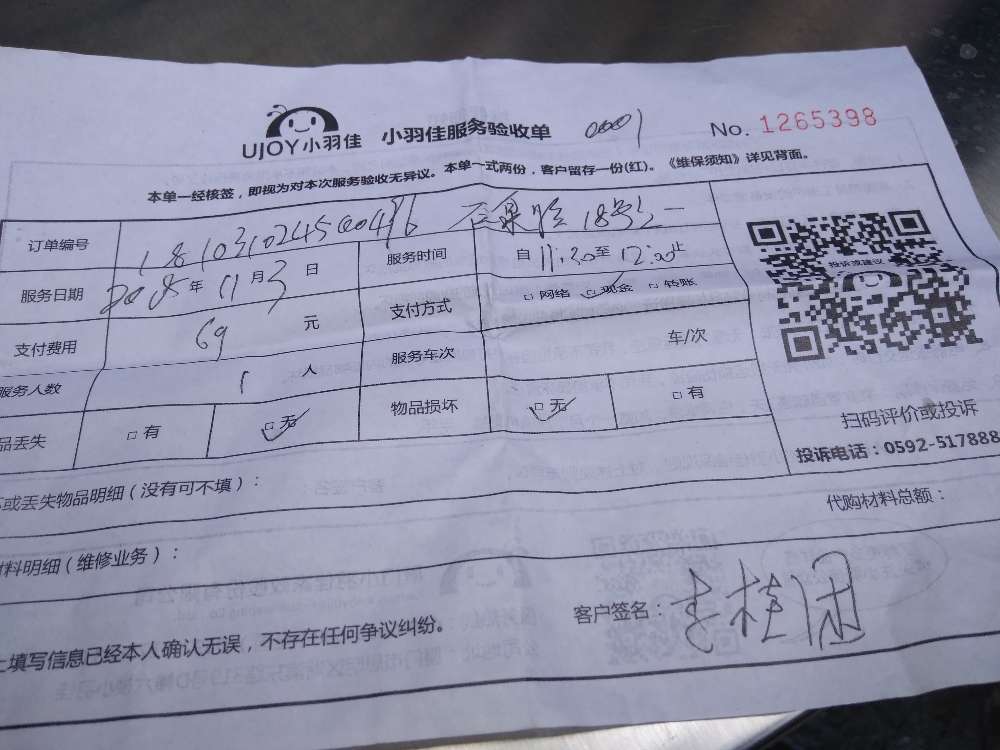 UJOY小羽佳 小羽佳服务验收单 0001 No. 1265398
本单一经核签，即视为对本次服务验收无异议。本单一式两份，客户留存一份(红)。《维保须知》详见背面。
订单编号 18103102450046 18号之一
服务日期 年 11月3日 服务时间 自 11:20至 12:20止
支付费用 69 元 支付方式 □网络 □现金 □转账
服务人数 1 人 服务车次 车/次
品丢失 □有 □无 物品损坏 □无 □有
投诉或建议
扫码评价或投诉
投诉电话：0592-517888
或丢失物品明细（没有可不填）：
代购材料总额：
材料明细（维修业务）：
上填写信息已经本人确认无误，不存在任何争议纠纷。
客户签名：